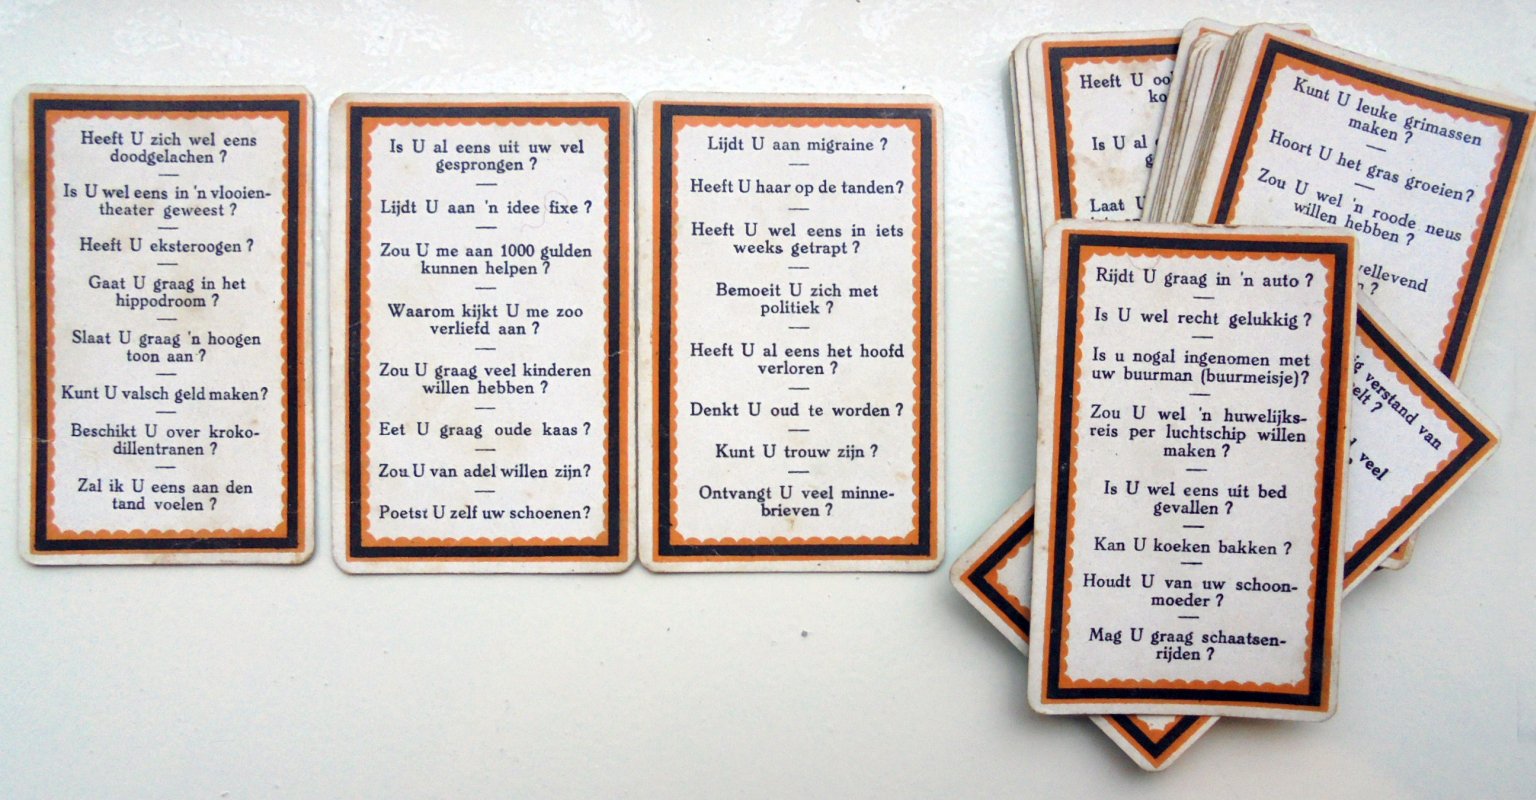 Heeft U zich wel eens
doodgelachen ?
Is U wel eens in 'n vlooien-
theater geweest ?
Heeft U eksteroogen ?
Gaat U graag in het
hippodroom ?
Slaat U graag 'n hoogen
toon aan ?
Kunt U valsch geld maken?
Beschikt U over kroko-
dillentranen ?
Zal ik U eens aan den
tand voelen ?
Is U al eens uit uw vel
gesprongen ?
Lijdt U aan 'n idee fixe ?
Zou U me aan 1000 gulden
kunnen helpen ?
Waarom kijkt U me zoo
verliefd aan ?
Zou U graag veel kinderen
willen hebben ?
Eet U graag oude kaas ?
Zou U van adel willen zijn?
Poetst U zelf uw schoenen?
Lijdt U aan migraine ?
Heeft U haar op de tanden?
Heeft U wel eens in iets
weeks getrapt ?
Bemoeit U zich met
politiek ?
Heeft U al eens het hoofd
verloren ?
Denkt U oud te worden ?
Kunt U trouw zijn ?
Ontvangt U veel minne-
brieven ?
Heeft U
Is U al
Laat U
Kunt U leuke grimassen
maken ?
Hoort U het gras groeien?
Zou U wel 'n roode neus
willen hebben ?
?
verstand van
?
veel
Rijdt U graag in 'n auto ?
Is U wel recht gelukkig ?
Is u nogal ingenomen met
uw buurman (buurmeisje)?
Zou U wel 'n huwelijks-
reis per luchtschip willen
maken ?
Is U wel eens uit bed
gevallen ?
Kan U koeken bakken ?
Houdt U van uw schoon-
moeder ?
Mag U graag schaatsen-
rijden ?